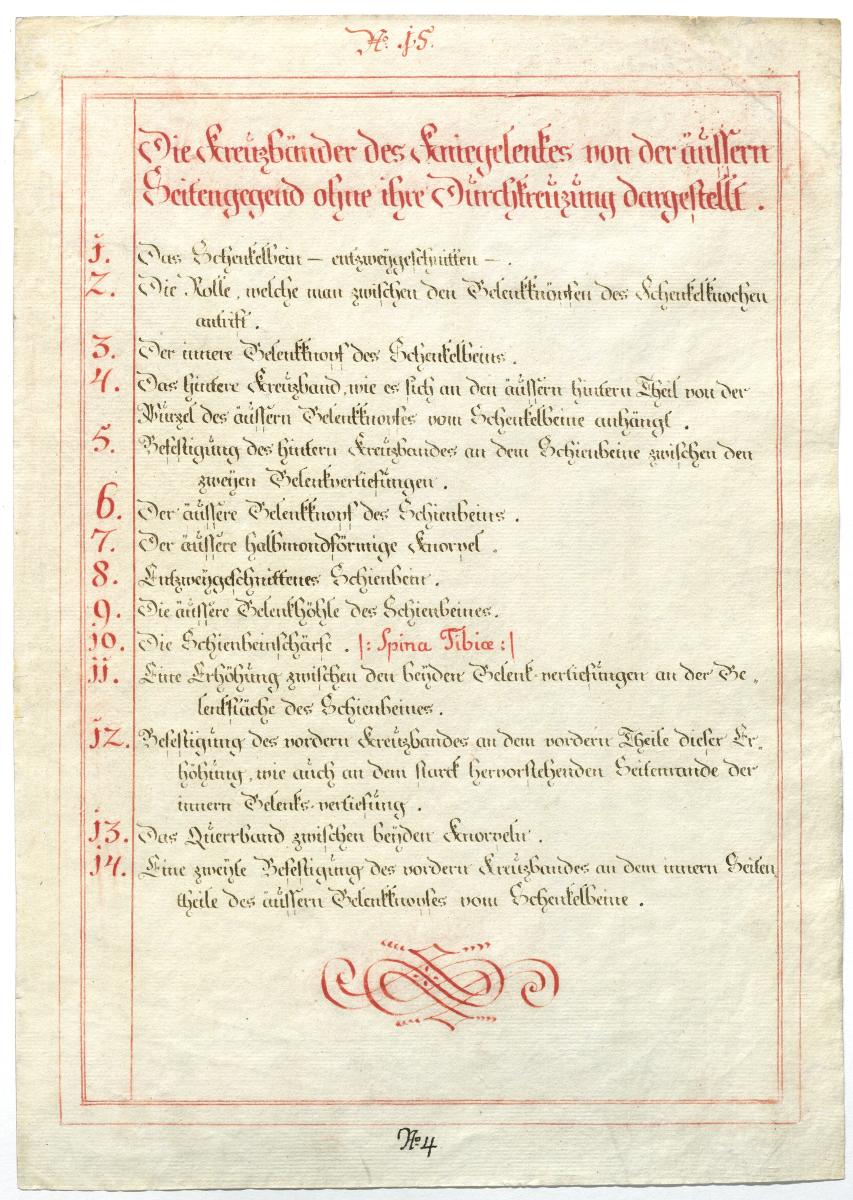 No. 15.
Die Kreuzbänder des Kniegelenkes von der äussern
Seitengegend ohne ihre Durchkreuzung dargestellt.
1. Das Schenkelbein – entzweygeschnitten – .
2. Die Rolle, welche man zwischen den Gelenkknöpfen des Schenkelknochen
antrift.
3. Der innere Gelenkknopf des Schenkelbeins.
4. Das hintere Kreuzband, wie es sich an den äussern hintern Theil von der
Wurzel des äussern Gelenkknopfes vom Schenkelbeine anhängt.
5. Befestigung des hintern Kreuzbandes an dem Schienbeine zwischen den
zweyen Gelenkvertiefungen.
6. Der äussere Gelenkknopf des Schienbeins.
7. Der äussere halbmondförmige Knorpel.
8. Entzweygeschnittenes Schienbein.
9. Die äussere Gelenkhöhle des Schienbeines.
10. Die Schienbeinschärfe. |: Spina Tibiæ :|
11. Eine Erhöhung zwischen den beyden Gelenk-vertiefungen an der Ge„
lenkfläche des Schienbeines.
12. Befestigung des vordern Kreuzbandes an dem vordern Theile dieser Er„
höhung, wie auch an dem starck hervorstehenden Seitenrande der
innern Gelenks-vertiefung.
13. Das Querrband zwischen beyden Knorpeln.
14. Eine zweyte Befestigung des vordern Kreuzbandes an dem innern Seiten
theile des äussern Gelenkknopfes vom Schenkelbeine.
No 4